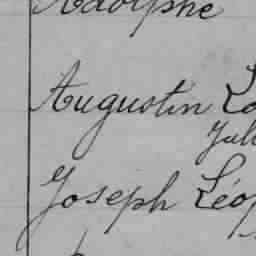 Adolphe
Augustin
Joseph Léop